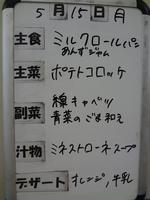 5月15日 月
主食 ミルクロールパン
あんずジャム
主菜 ポテトコロッケ
副菜 線キャベツ
青菜のごま和え
汁物 ミネストローネスープ
デザート オレンジ、牛乳